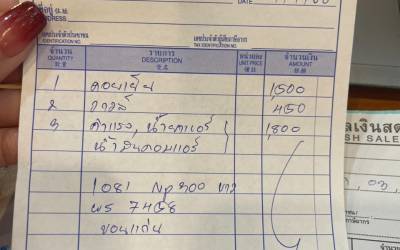 ที่อยู่
ADDRESS
DATE
เลขประจำตัวประชาชน
เลขประจำตัวผู้เสียภาษีอากร
TAX IDENTIFICATION NO.
จำนวน รายการ หน่วยละ จำนวนเงิน
QUANTITY DESCRIPTION UNIT PRICE AMOUNT
1 คอยเย็น 1,500
2 วาล์ว 450
3 ค่าแรง, น้ำยาแอร์ 1,800
น้ำมันคอมแอร์
1081 NP300
7458
ขอนแก่น
เงินสด
SH SALE